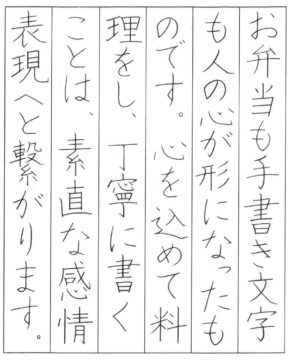 お弁当も手書き文字
も人の心が形になったも
のです。心を込めて料
理をし、丁寧に書く
ことは、素直な感情
表現へと繋がります。